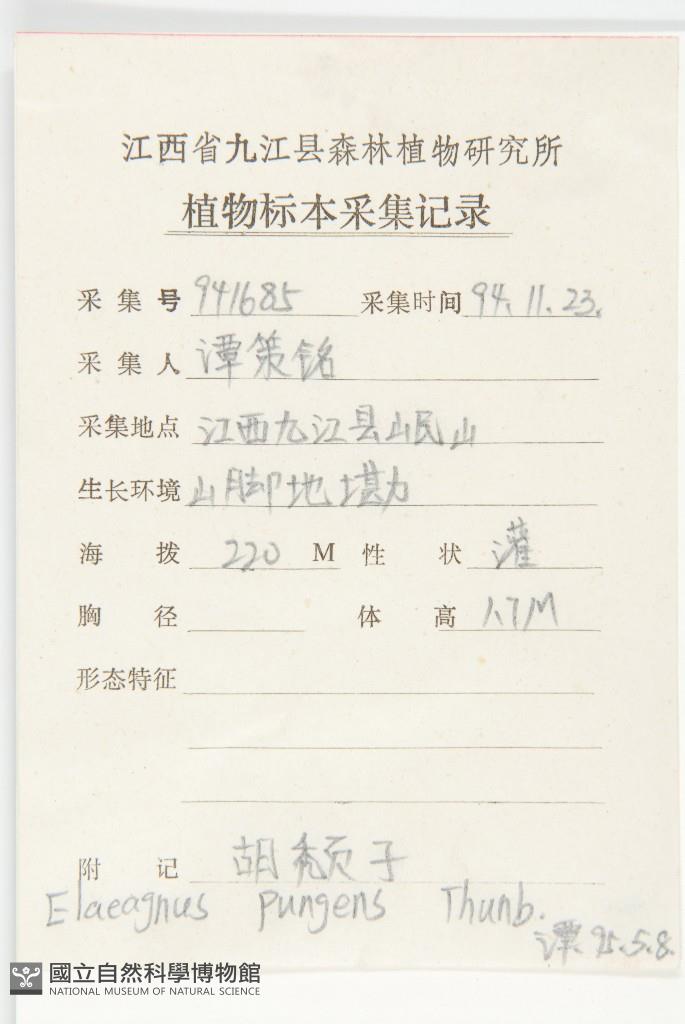 江西省九江县森林植物研究所
植物标本采集记录
采集号 941685 采集时间 94.11.23.
采集人 谭策铭
采集地点 江西九江县岷山
生长环境 山脚地堪
海拨 220 M 性状 灌
胸径 体高 1.7M
形态特征
附记 胡颓子
Elaeagnus pungens Thunb.
谭.95.5.8.
國立自然科學博物館
NATIONAL MUSEUM OF NATURAL SCIENCE